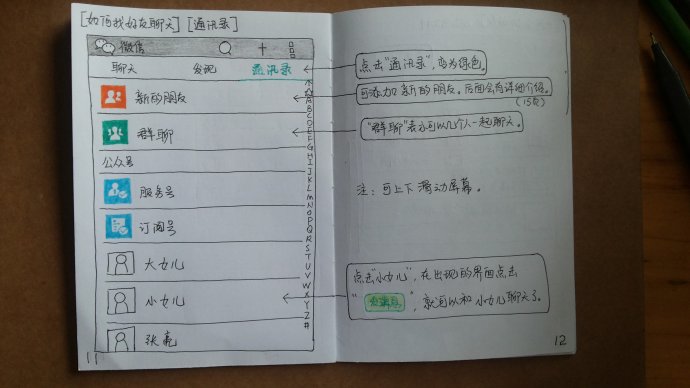 [如何找好友聊天] [通讯录]
微信
聊天 发现 通讯录
新的朋友
群聊
公众号
服务号
订阅号
大女儿
小女儿
张亮
↑
☆
A
B
C
D
E
F
G
H
I
J
K
L
M
N
O
P
Q
R
S
T
U
V
W
X
Y
Z
#
11
点击"通讯录",变为绿色。
可添加新的朋友。后面会有详细介绍。
(15页)
"群聊"表示可以几个人一起聊天。
注:可上下滑动屏幕。
点击"小女儿",在出现的界面点击
"发消息",就可以和小女儿聊天了。
12